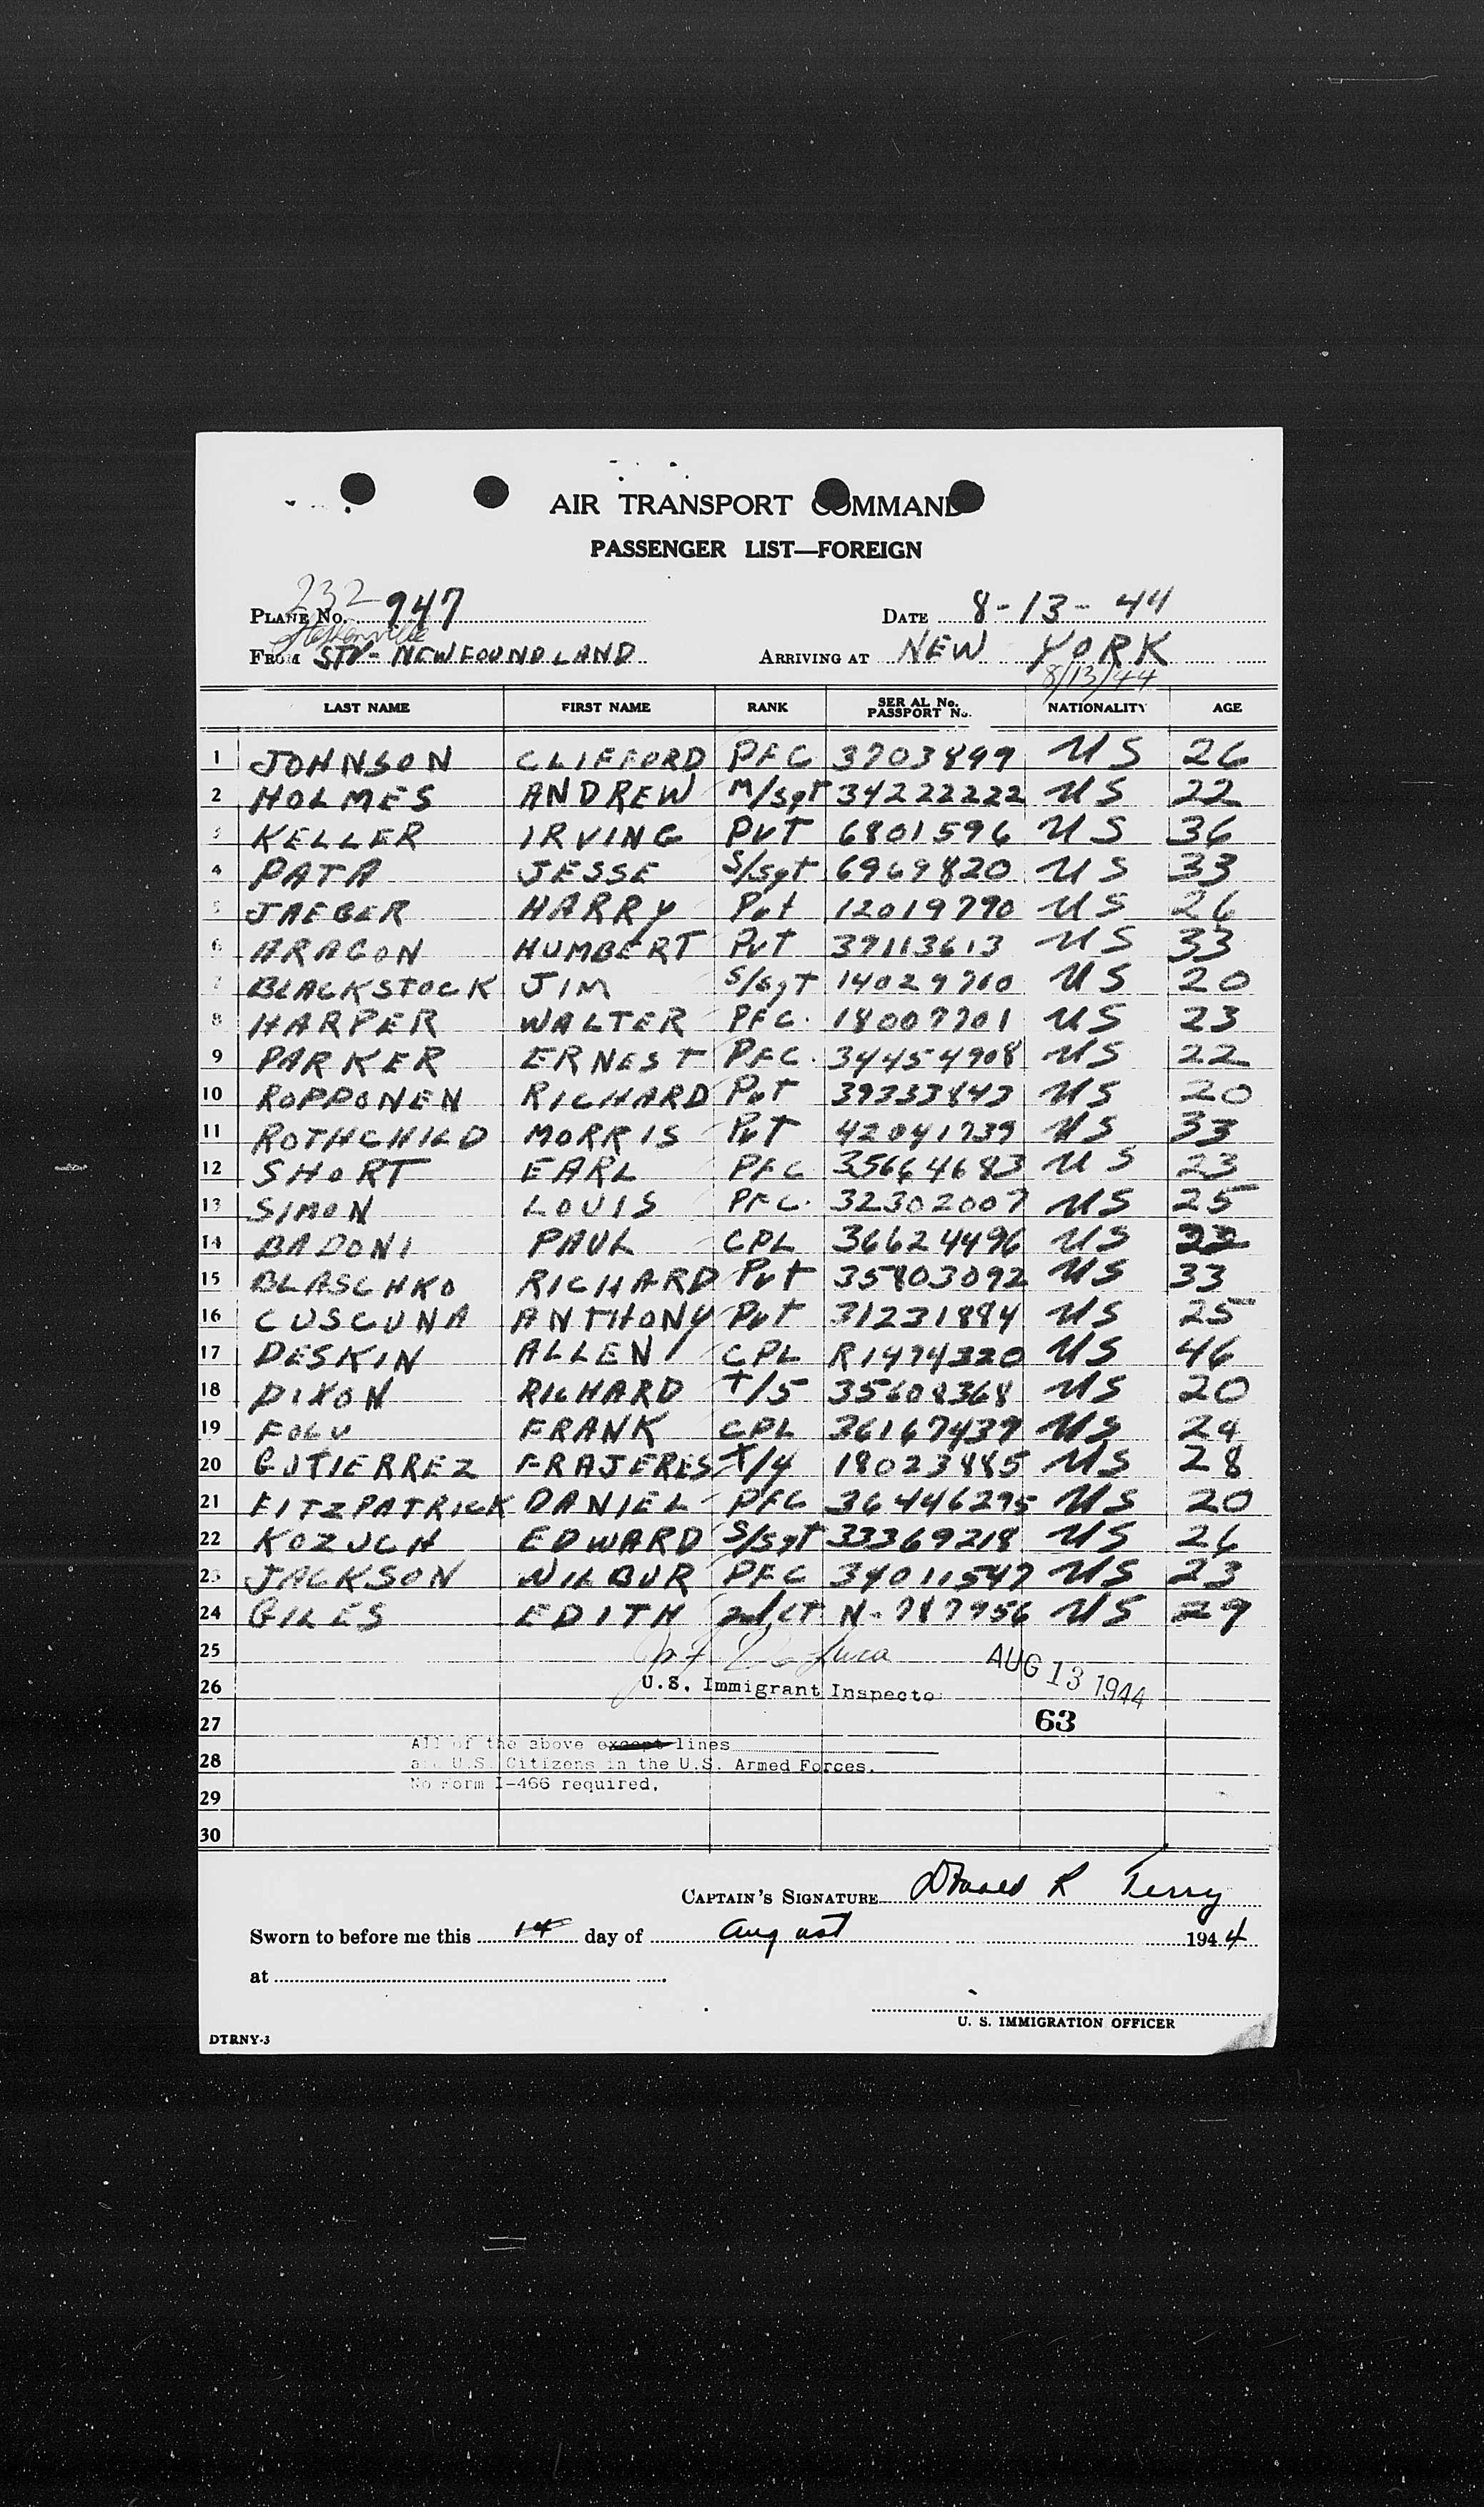 AIR TRANSPORT COMMAND
PASSENGER LIST—FOREIGN
232
PLANE No. 947 DATE 8-13-44
Stephenville
FROM STV- NEWFOUNDLAND ARRIVING AT NEW YORK
8/13/44
LAST NAME FIRST NAME RANK SERIAL No. PASSPORT No. NATIONALITY AGE
1 JOHNSON CLIFFORD PFC 3703899 US 26
2 HOLMES ANDREW M/Sgt 34222222 US 22
3 KELLER IRVING PVT 6801596 US 36
4 PATA JESSE S/Sgt 6969820 US 33
5 JAEGER HARRY Pvt 12019790 US 26
6 ARAGON HUMBERT PVT 39113613 US 33
7 BLACKSTOCK JIM S/Sgt 14029710 US 20
8 HARPER WALTER PFC. 18007701 US 23
9 PARKER ERNEST PFC. 34454908 US 22
10 ROPPONEN RICHARD PvT 39333843 US 20
11 ROTHCHILD MORRIS PvT 42041739 US 33
12 SHORT EARL PFC 35664683 US 23
13 SIMON LOUIS PFC. 32302007 US 25
14 BADONI PAUL CPL 36624496 US 22
15 BLASCHKO RICHARD PvT 35803092 US 33
16 CUSCUNA ANTHONY PvT 31231884 US 25
17 DESKIN ALLEN CPL R1474320 US 46
18 DIXON RICHARD T/5 35608368 US 20
19 FRANK CPL 36167439 US 29
20 GUTIERREZ FRAJERES T/4 18023885 US 28
21 FITZPATRICK DANIEL PFC 36446295 US 20
22 KOZUCH EDWARD S/Sgt 33369218 US 26
23 JACKSON WILBUR PFC 34011547 US 23
24 GILES EDITH 2nd/LT N-787956 US 29
25
26 U.S. Immigrant Inspecto AUG 13 1944
27 63
All of the above except lines
28 are U.S. Citizens in the U.S. Armed Forces.
No Form I-466 required.
29
30
CAPTAIN'S SIGNATURE Donald R Terry
Sworn to before me this 14 day of August 1944
at
U. S. IMMIGRATION OFFICER
DTRNY-3